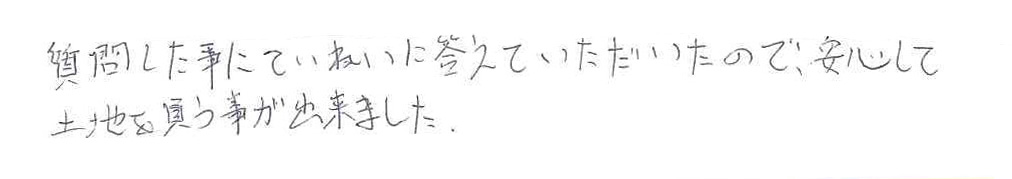 質問した事にていねいに答えていただいたので、安心して
土地を買う事が出来ました.